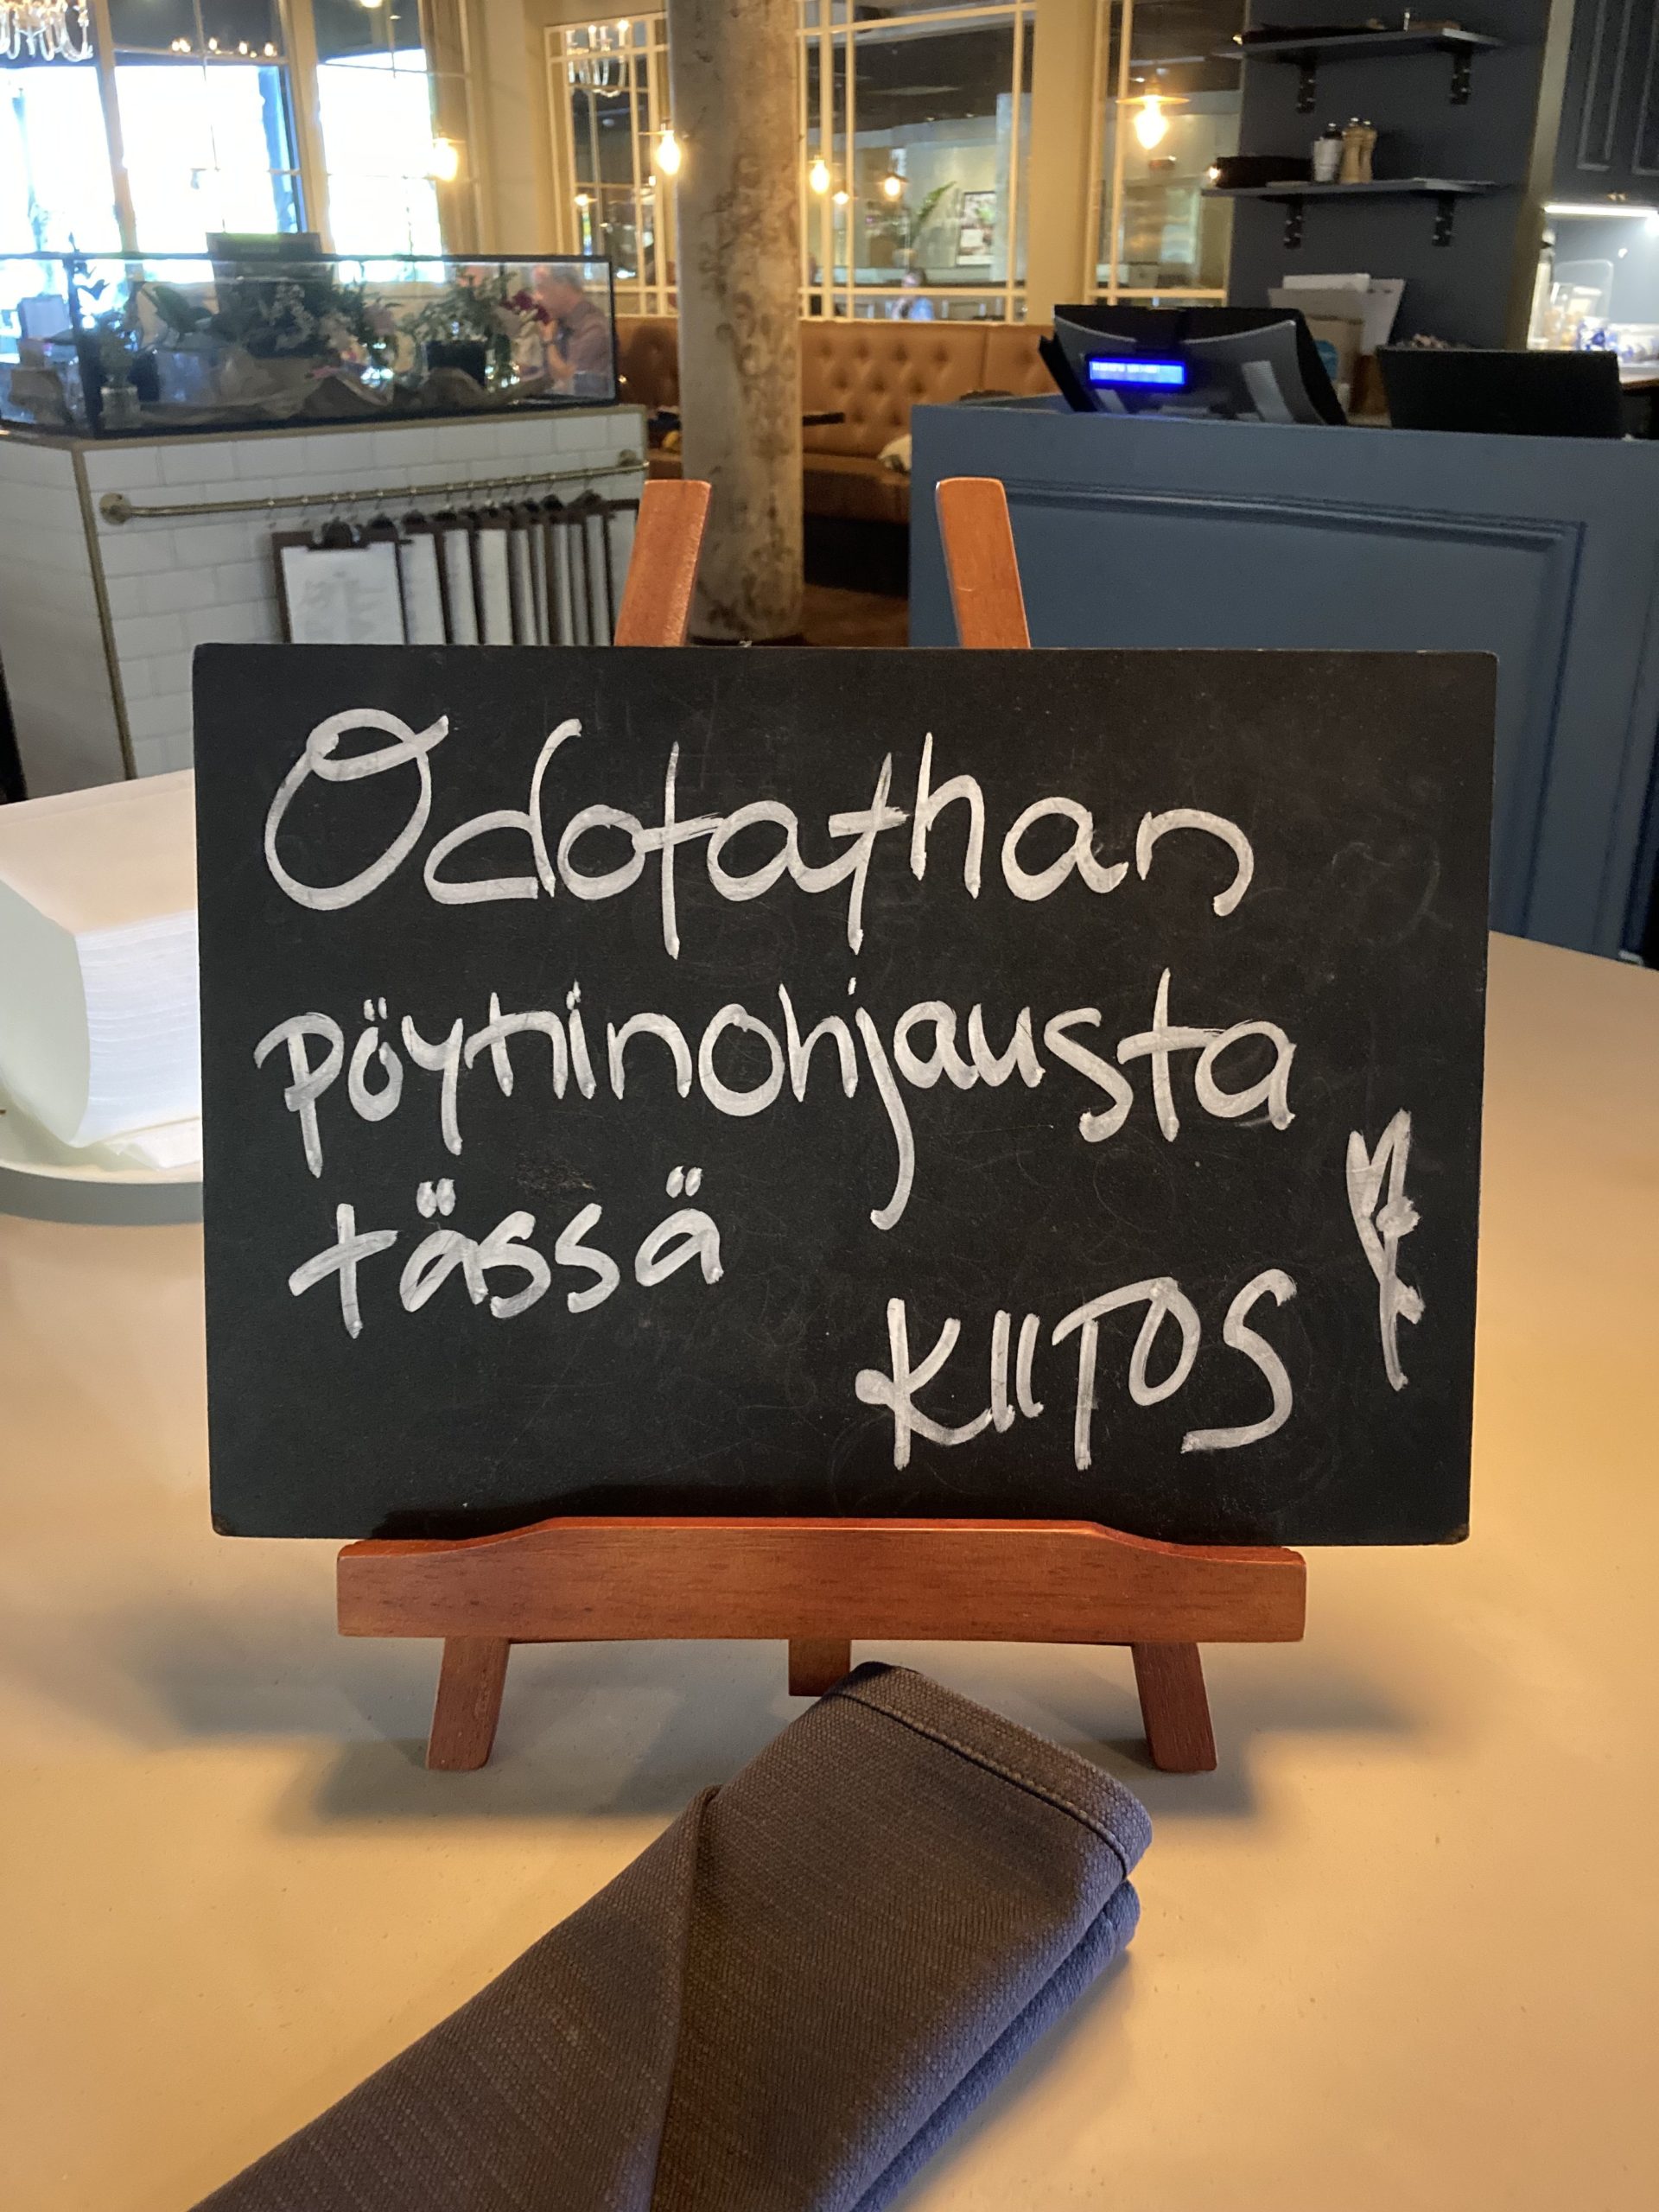 Odotathan
pöytiinohjausta
tässä
KIITOS